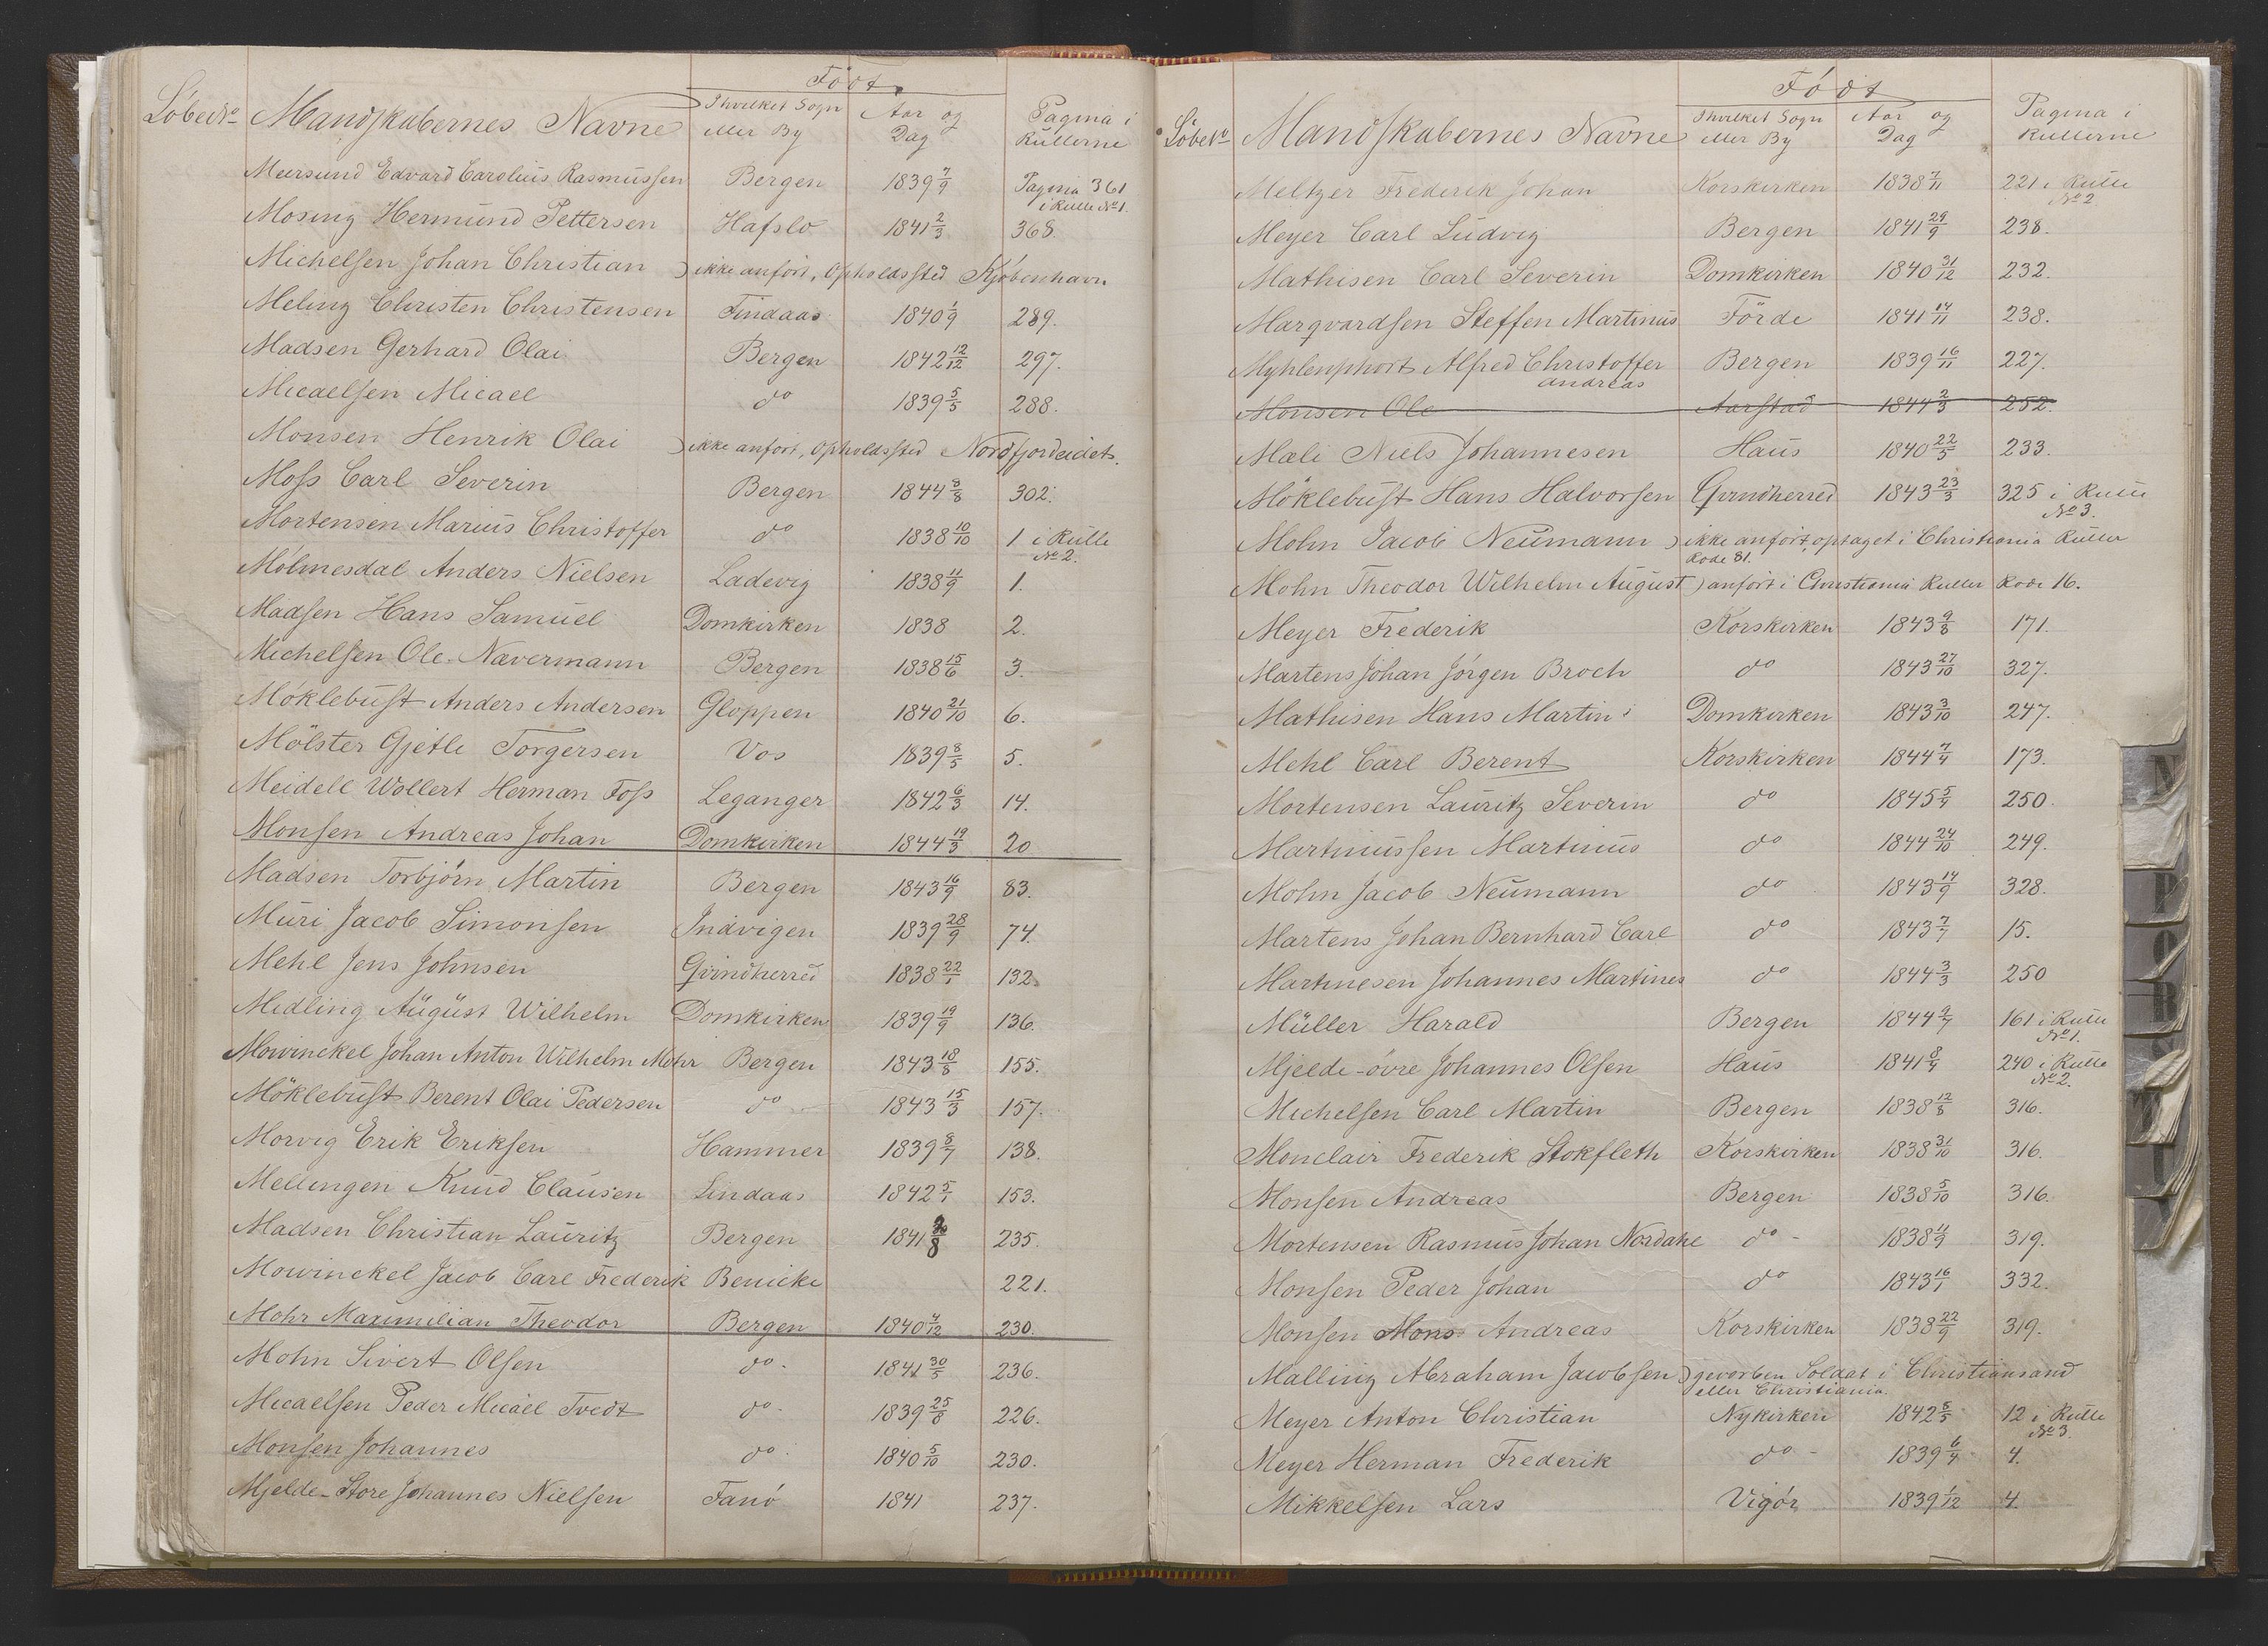 Födt
LöbeNo Mandskabernes Navne I hvilket Sogn eller By Aar og Dag Pagina i Rullerne
Meersund Edvard Carolius Rasmussen Bergen 1839 7/9 Pagina 361 i Rulle No 1.
Mosing Hermund Pettersen Hafslo 1841 2/3 368.
Michelsen Johan Christian ) ikke anfört, Opholdssted Kjøbenhavn
Meling Christen Christensen Findaas 1840 1/9 289.
Madsen Gerhard Olai Bergen 1842 12/12 297.
Micaelsen Micael do 1839 5/5 288.
Monsen Henrik Olai ) ikke anfört, Opholdssted Nordfjordeidet.
Moss Carl Severin Bergen 1844 8/8 302.
Mortensen Marius Christoffer do 1838 10/10 1 i Rulle No 2.
Mölmesdal Anders Nielsen Ladevig 1838 11/9 1.
Madsen Hans Samuel Domkirken 1838 2.
Michelsen Ole Nævermann Bergen 1838 15/6 3.
Möklebust Anders Andersen Gloppen 1840 21/10 6.
Mölster Gjetle Torgersen Vos 1839 8/5 5.
Meidell Wollert Herman Foss Leganger 1842 6/3 14.
Monsen Andreas Johan Domkirken 1844 19/3 20
Madsen Torbjörn Martin Bergen 1843 16/9 83.
Muri Jacob Simonsen Indvigen 1839 28/9 74.
Mehl Jens Johnsen Qvindherred 1838 22/1 132.
Midling August Wilhelm Domkirken 1839 19/9 136.
Mowinckel Johan Anton Wilhelm Mohr Bergen 1843 18/8 155.
Möklebust Berent Olai Pedersen do 1843 15/3 157.
Morvig Erik Eriksen Hammer 1839 8/7 138.
Mellingen Knud Clausen Lindaas 1842 5/1 153.
Madsen Christian Lauritz Bergen 1841 235.
Mowinckel Jacob Carl Frederik Benicke 221.
Mohr Maximilian Theodor Bergen 1840 4/12 230.
Mohn Sivert Olsen do. 1841 30/5 236.
Micaelsen Peder Micael Tvedt do. 1839 25/8 226.
Monsen Johannes do. 1840 5/10 230.
Mjelde-Store Johannes Nielsen Fanö 1841 237.
Födt
LöbeNo Mandskabernes Navne I hvilket Sogn eller By Aar og Dag Pagina i Rullerne
Meltzer Frederik Johan Korskirken 1838 7/11 221 i Rulle No 2
Meyer Carl Ludvig Bergen 1841 29/9 238.
Mathisen Carl Severin Domkirken 1840 31/12 232.
Marqvardsen Steffen Martinus Förde 1841 14/11 238.
Myhlenphort Alfred Christoffer Andreas Bergen 1839 16/11 227.
Monsen Ole Aarstad 1844 2/3 252.
Mæli Niels Johannesen Haus 1840 22/5 233.
Möklebust Hans Halvorsen Qvindherred 1843 23/3 325 i Rulle No 3.
Mohn Jacob Neumann ) ikke anfört, optaget i Christiania Ruller
Rode 81.
Mohn Theodor Wilhelm August ) anfört i Christiania Ruller Rode 16.
Meyer Frederik Korskirken 1843 9/8 171.
Martens Johan Jörgen Broch do 1843 27/10 327.
Mathisen Hans Martin Domkirken 1843 3/10 247.
Mehl Carl Berent Korskirken 1844 7/4 173.
Mortensen Lauritz Severin do 1845 5/4 250.
Martinussen Martinus do 1844 24/10 249.
Mohn Jacob Neumann do 1843 14/9 328.
Martens Johan Bernhard Carl do 1843 7/7 15.
Martinesen Johannes Martines do 1844 3/3 250
Müller Harald Bergen 1844 9/7 161 i Rulle No 1.
Mjelde-övre Johannes Olsen Haus 1841 8/4 240 i Rulle No 2.
Michelsen Carl Martin Bergen 1838 12/8 316.
Monclair Frederik Stokfleth Korskirken 1838 31/10 316.
Monsen Andreas Bergen 1838 5/10 316.
Mortensen Rasmus Johan Nordahl do - 1838 11/9 319.
Monsen Peder Johan do 1843 16/1 332.
Monsen Mons Andreas Korskirken 1838 22/9 319.
Malling Abraham Jacobsen ) gevorben Soldat i Christiansand
eller Christiania.
Meyer Anton Christian Nykirken 1842 5/5 12 i Rulle No 3.
Meyer Herman Frederik do - 1839 6/4 4.
Mikkelsen Lars Vigör 1839 1/12 4.
N
P